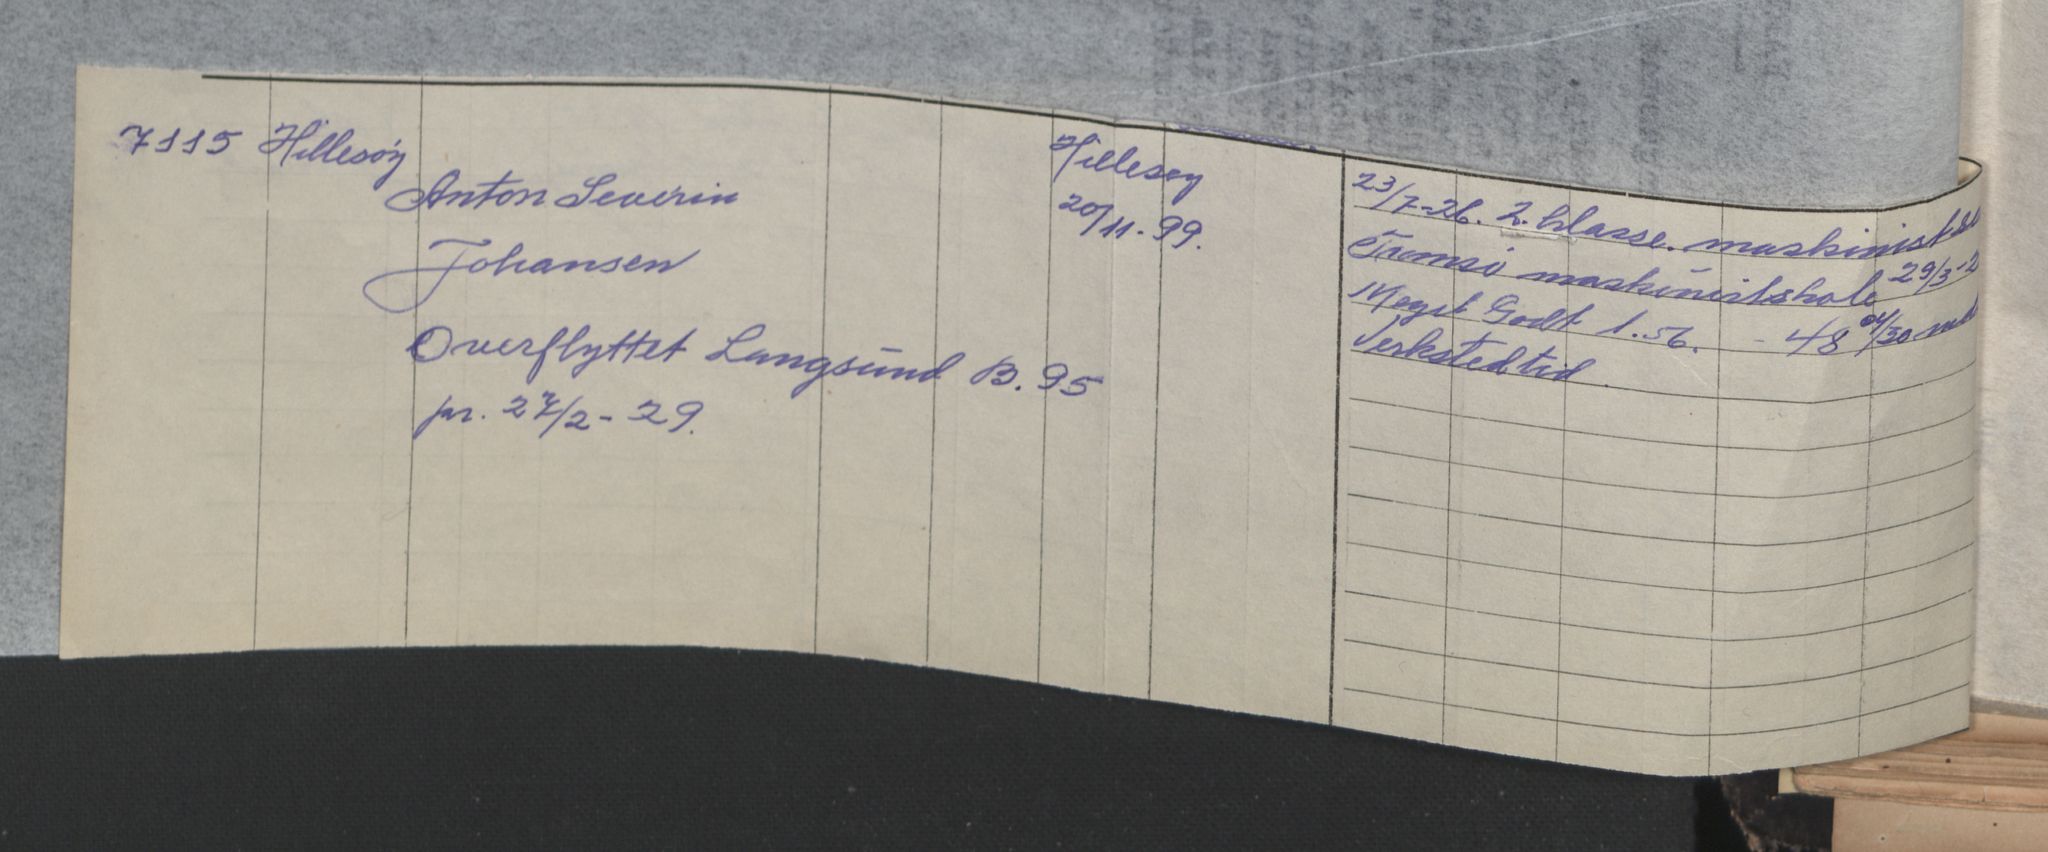 7115 Hillesöy
Anton Severin
Johansen
Overflyttet Langsund B. 95
pr. 27/2 - 29.
Hillesøy
20/11. 99.
23/7-26. 2. klasse. maskinist
Tromsö maskinistskole 29/3-2
Meget Godt 1.56. - 48
Verkstedtid.